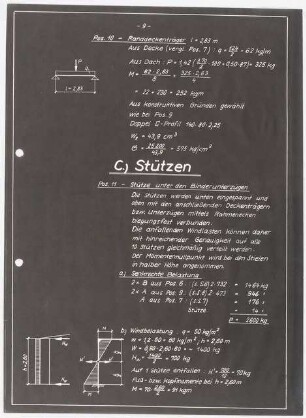 - 9 -
Pos. 10 - Randdeckenträger l = 2,83 m
Aus Decke (vergl. Pos. 7) : q = = 62 kg/m
Aus Dach : P = 1,42 ( 100 + 0,50·87) = 325 kg
M = 62·2,83² / 8 + 325·2,83 / 4
= 22 + 230 = 252 kgm
Aus konstruktiven Gründen gewählt
wie bei Pos. 9
Doppel C-Profil 140·80·2,25
= 43,9 cm³
= 25 200 / 43,9 = 575 kg/cm²
P
l = 2,83
C.) Stützen
Pos. 11 - Stütze unter den Binderunterzügen
Die Stützen werden unten eingespannt und
oben mit den anschließenden Deckenträgern
bzw. Unterzügen mittels Rahmenecken
biegungsfest verbunden.
Die anfallenden Windlasten können daher
mit hinreichender Genauigkeit auf alle
10 Stützen gleichmäßig verteilt werden.
Der Momentennullpunkt wird bei den Stielen
in halber Höhe angenommen.
a) Senkrechte Belastung
2 × B aus Pos. 6 : (s.S.6) 2·732 = 1464 kg
2 × A aus Pos. 8 : (s.S.8) 2·473 = 946 "
A aus Pos. 7 : (s.S.7) = 176 "
Stütze = 14 "
= 2600 kg
b) Windbelastung : q = 50 kg/m²
w = 1,2·50 = 60 kg/m², h = 2,60 m
W = 2,60·60 = ~ 1400 kg
= 700 kg
Auf 1 Stütze entfallen = 70 kg
Fuß- bzw. Kopfmomente bei h = 2,60 m
M = 70· = 91 kgm
h = 2,60
M
H'